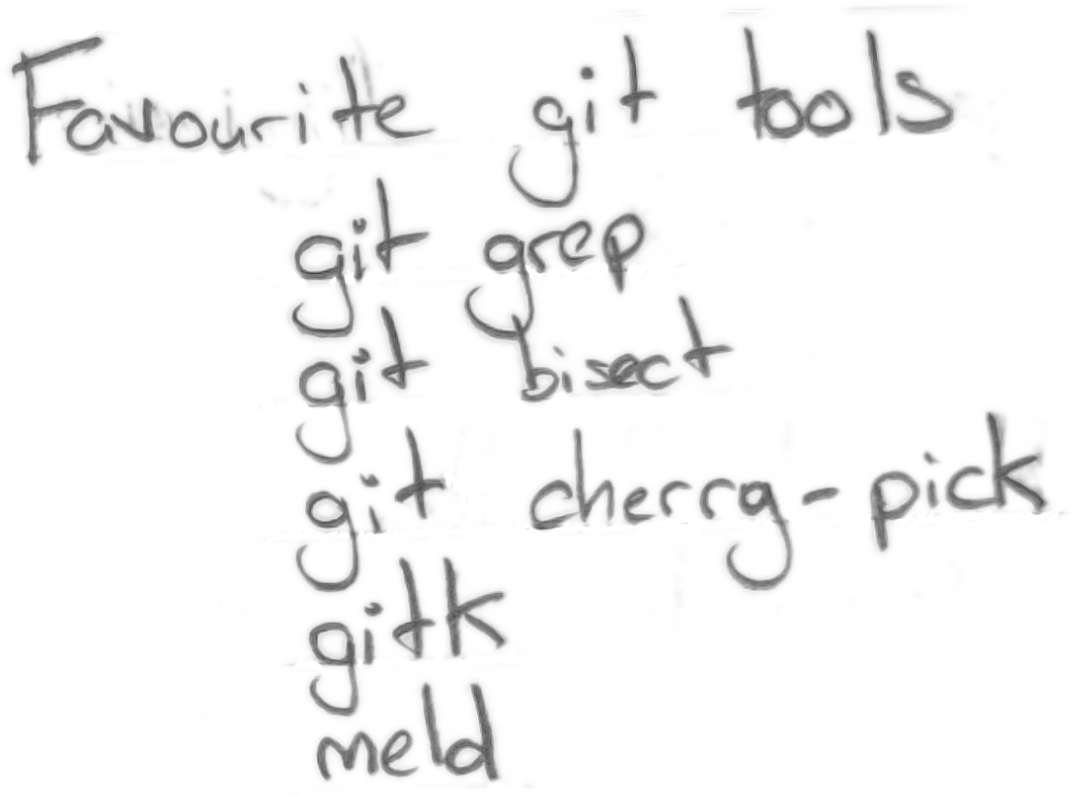 Favourite git tools
git grep
git bisect
git cherry-pick
gitk
meld